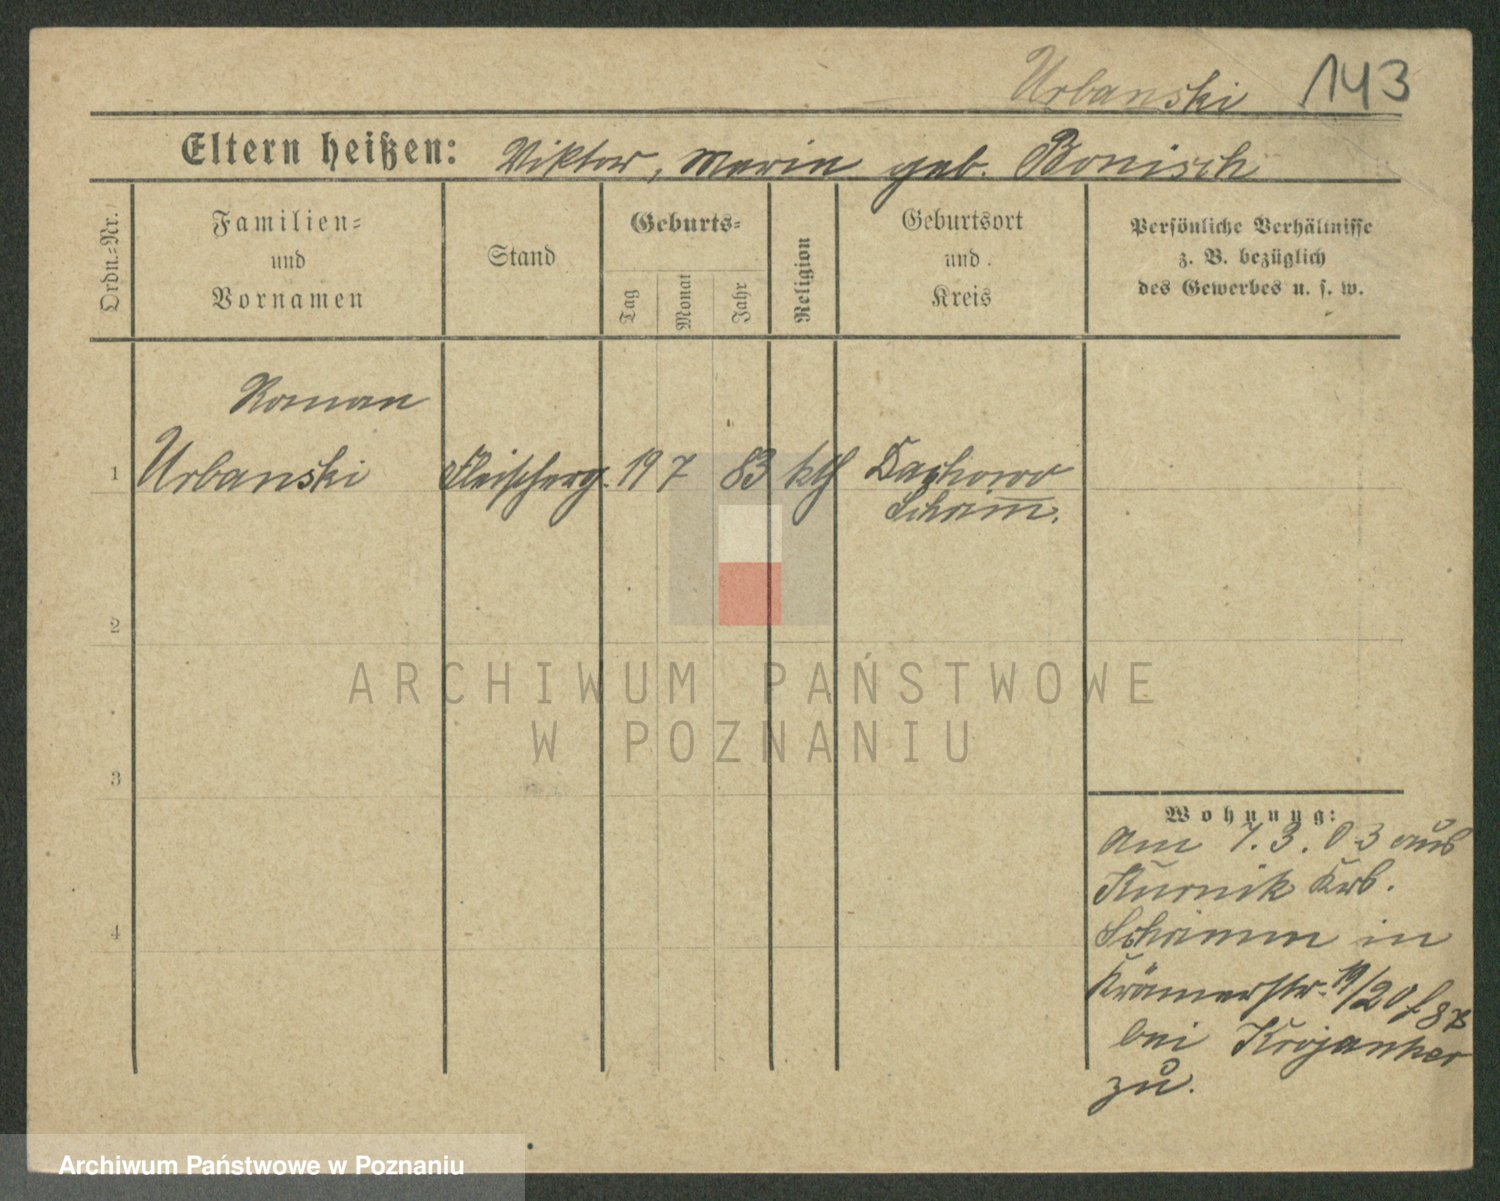 Urbanski 143
Eltern heißen: Viktor, Marie geb. Bonisch
Ordn.-Nr.
Familien-
und
Vornamen
Stand
Geburts-
Tag
Monat
Jahr
Religion
Geburtsort
und
Kreis
Persönliche Verhältnisse
z. B. bezüglich
des Gewerbes u. s. w.
Roman
1 Urbanski Fleischerg. 19 7 83 kth Daskowo
Schrimm.
2
3
4
Wohnung:
am 7. 3. 03 aus
Kurnik Krb.
Schrimm in
Krämerstr. 19/20
bei Krojanker
zu.
ARCHIWUM PAŃSTWOWE
W POZNANIU
Archiwum Państwowe w Poznaniu